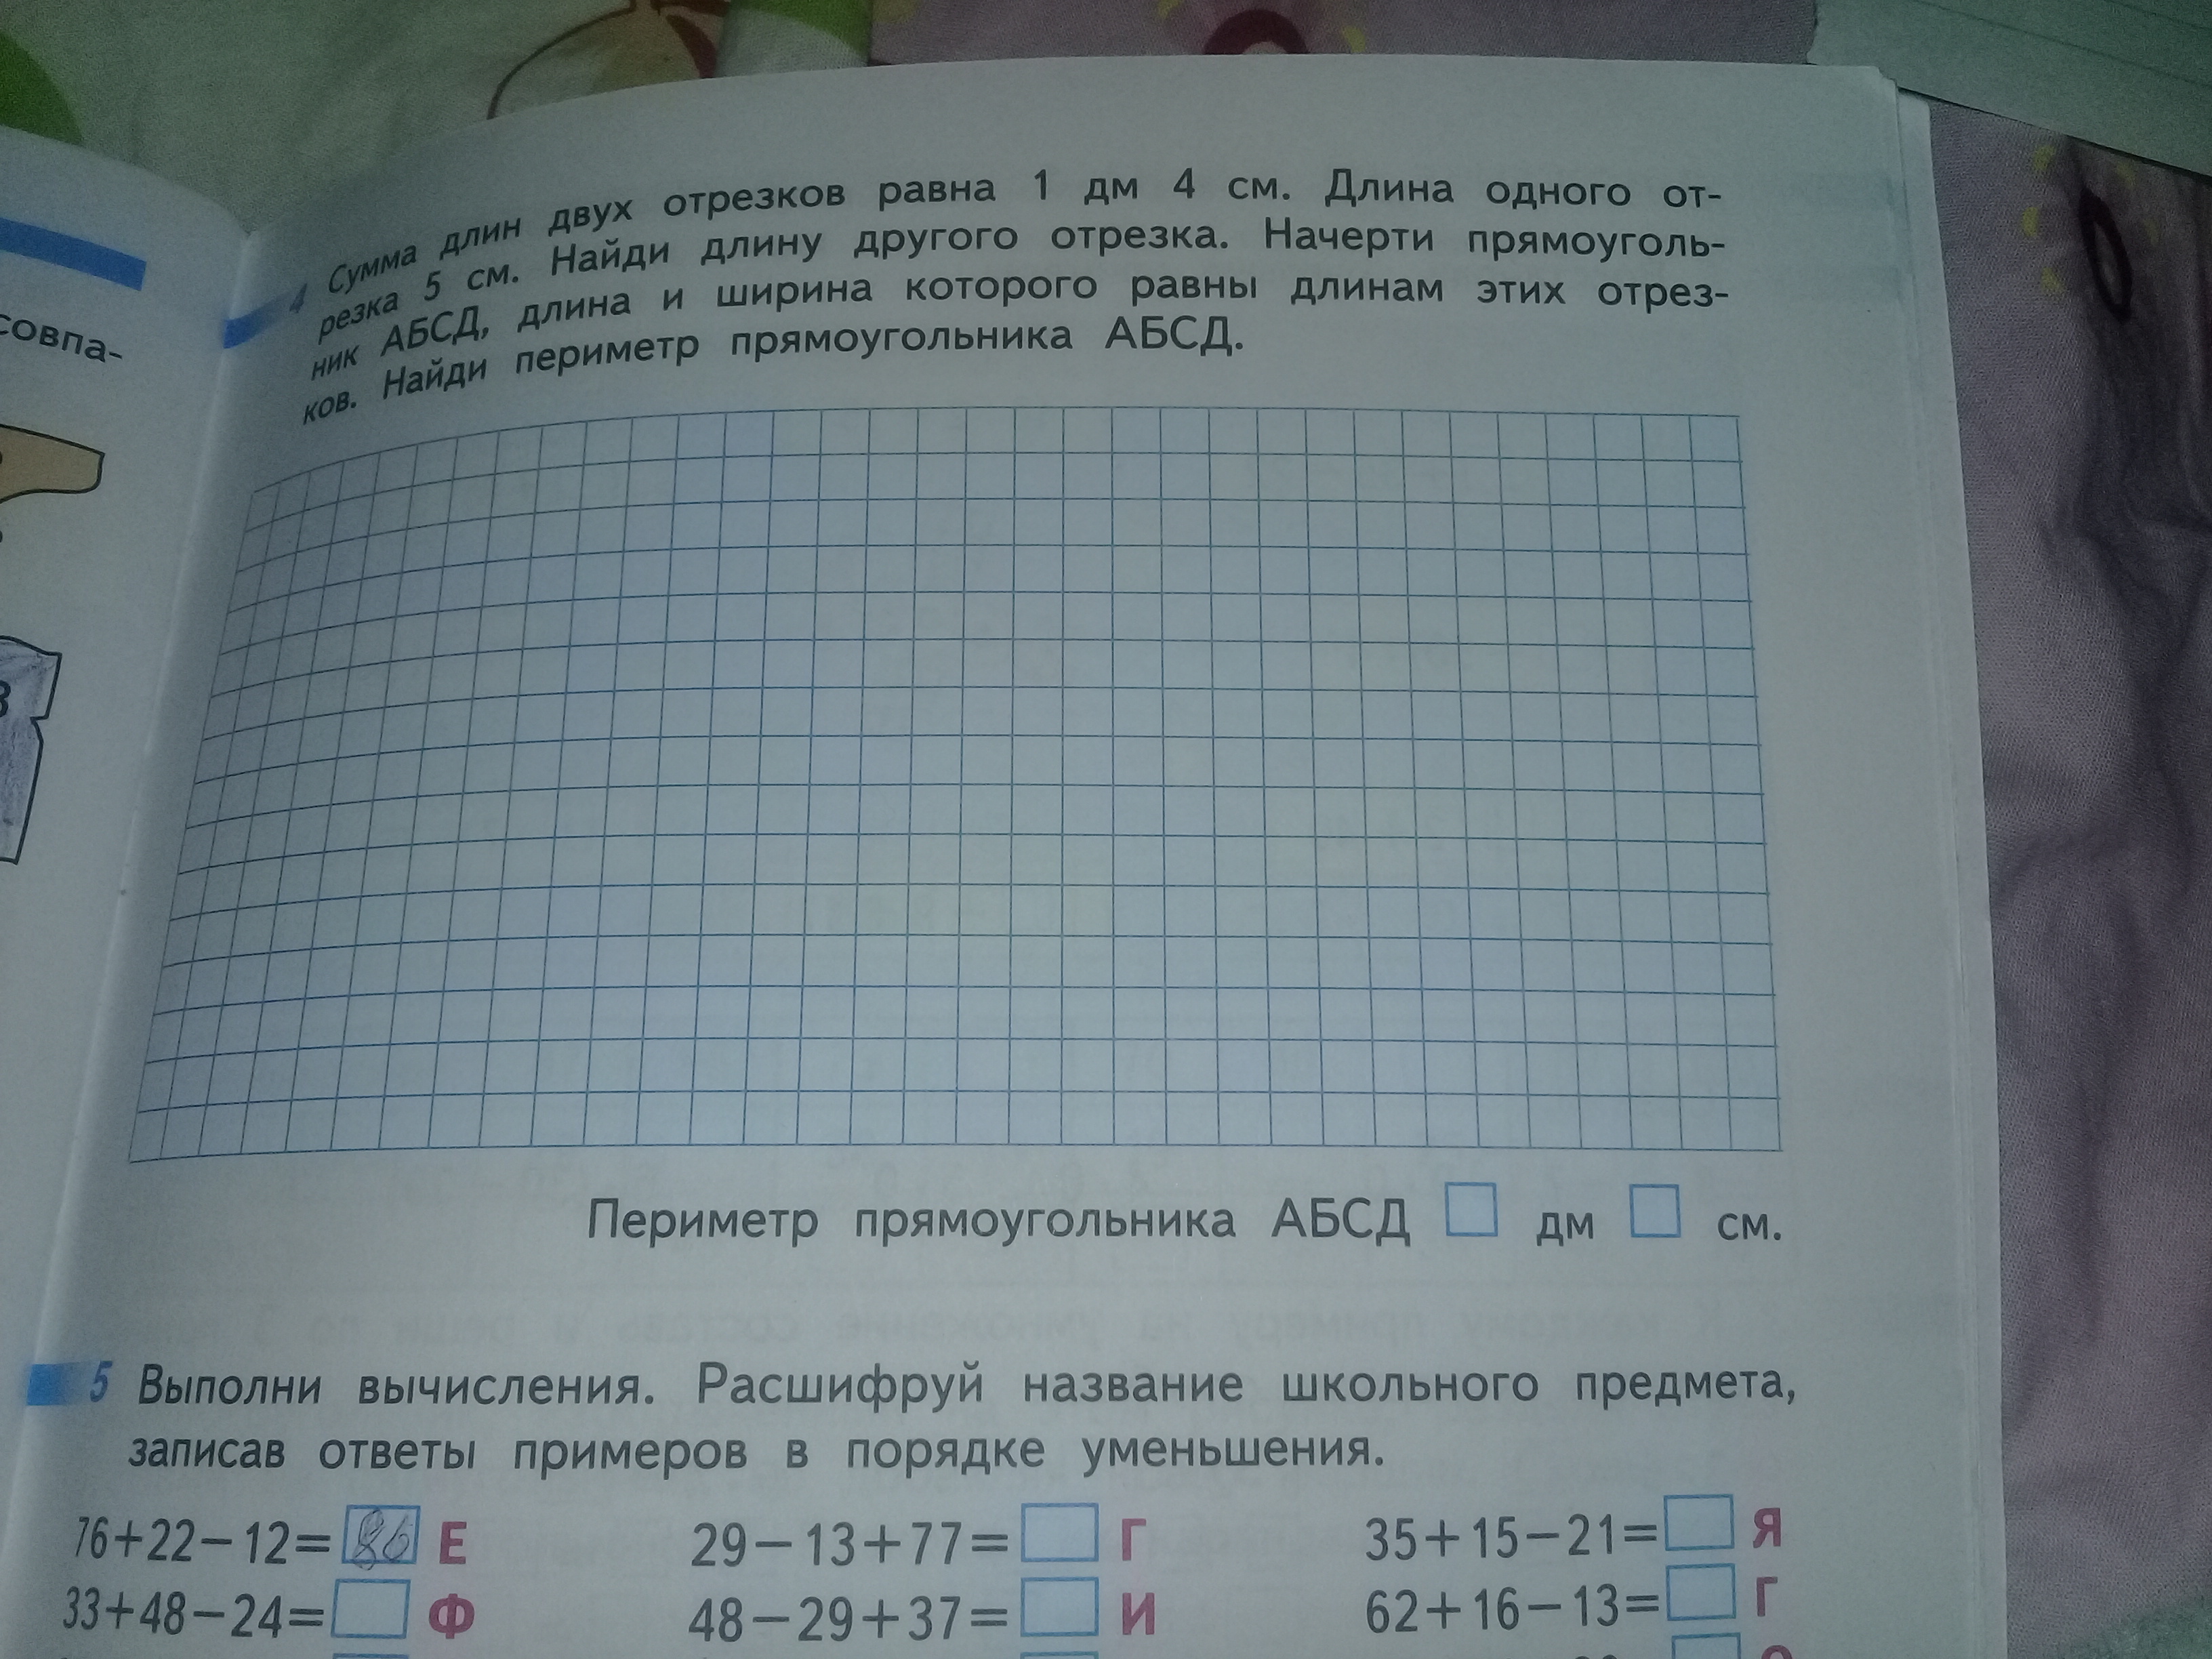 совпа-
4 Сумма длин двух отрезков равна 1 дм 4 см. Длина одного от-
резка 5 см. Найди длину другого отрезка. Начерти прямоуголь-
ник АБСД, длина и ширина которого равны длинам этих отрез-
ков. Найди периметр прямоугольника АБСД.
Периметр прямоугольника АБСД дм см.
5 Выполни вычисления. Расшифруй название школьного предмета,
записав ответы примеров в порядке уменьшения.
76+22-12= 86 Е 29-13+77= Г 35+15-21= Я
33+48-24= Ф 48-29+37= И 62+16-13= Г